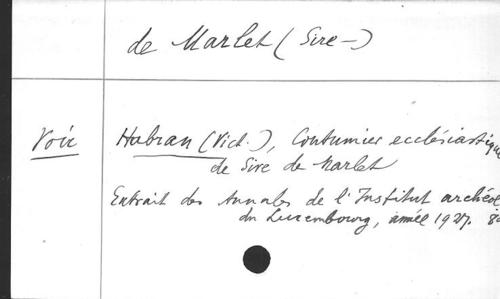 de Marlet (Sire –)
Voir Habran (Vict.), Coutumier ecclésiastique
de Sire de Marlet
Extrait des Annales de l'Institut archéol
du Luxembourg, année 1927. 8°